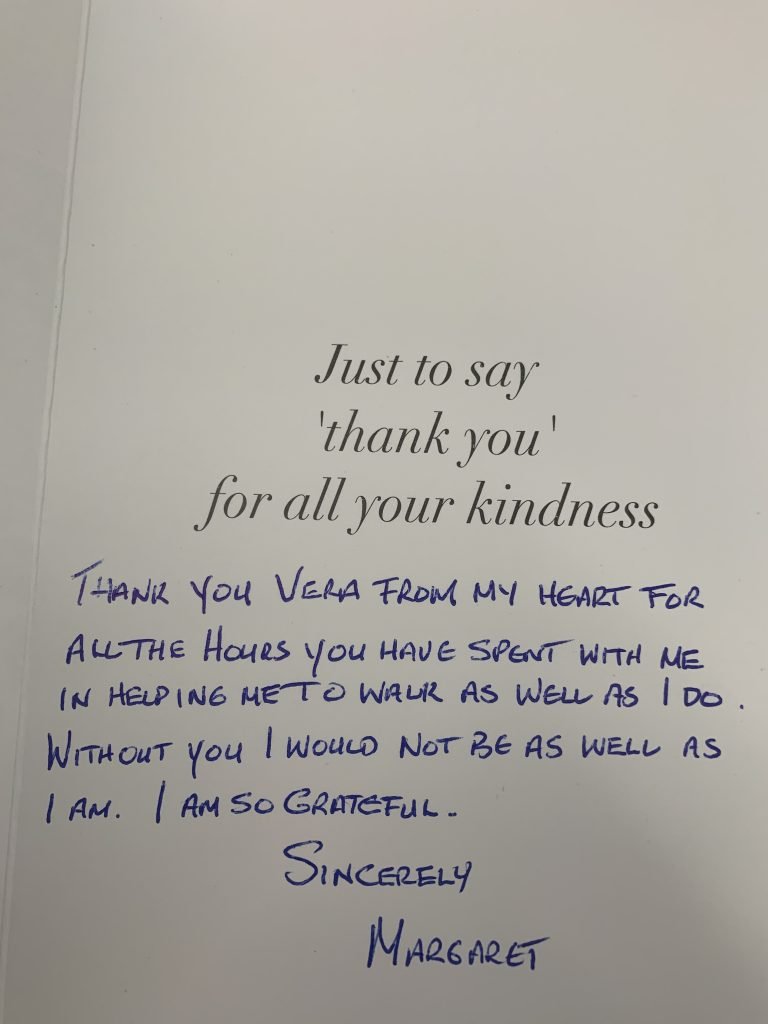 Just to say
'thank you'
for all your kindness
THANK YOU VERA FROM MY HEART FOR
ALL THE HOURS YOU HAVE SPENT WITH ME
IN HELPING ME TO WALK AS WELL AS I DO.
WITHOUT YOU I WOULD NOT BE AS WELL AS
I AM. I AM SO GRATEFUL.
SINCERELY
MARGARET